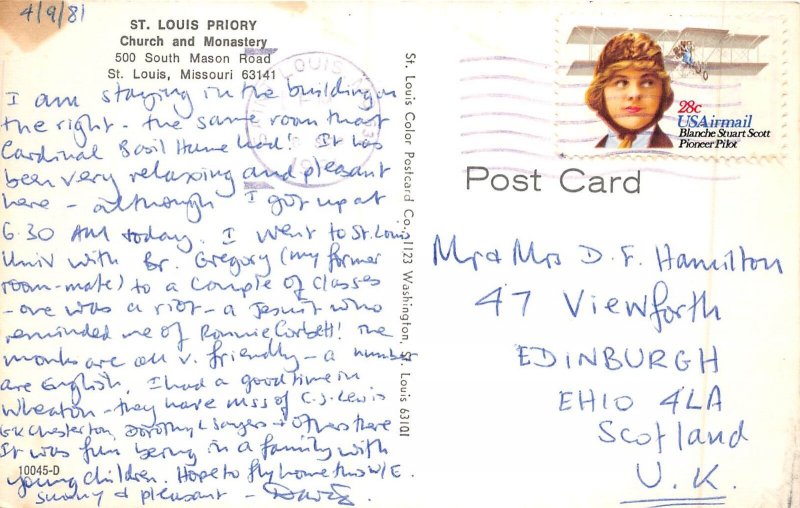 4/9/81
ST. LOUIS PRIORY
Church and Monastery
500 South Mason Road
St. Louis, Missouri 63141
I am staying in the building on
the right - the same room that
Cardinal Basil Hume had! It has
been very relaxing and pleasant
here - although I got up at
6.30 AM today. I went to St. Louis
Univ with Br. Gregory (my former
room-mate) to a couple of classes
- one was a riot - a Jesuit who
reminded me of Ronnie Corbett! The
monks are all v. friendly - a number
are English. I had a good time in
Wheaton - they have mss of C.S. Lewis
GK Chesterton, Dorothy L Sayers + others there
It was fun being in a family with
young children. Hope to fly home this W/E.
sunny & pleasant - David.
10045-D
St. Louis Color Postcard Co., 1123 Washington, St. Louis 63101
28c
USAirmail
Blanche Stuart Scott
Pioneer Pilot
Post Card
Mr & Mrs D. F. Hamilton
47 Viewforth
EDINBURGH
EH10 4LA
Scotland
U.K.